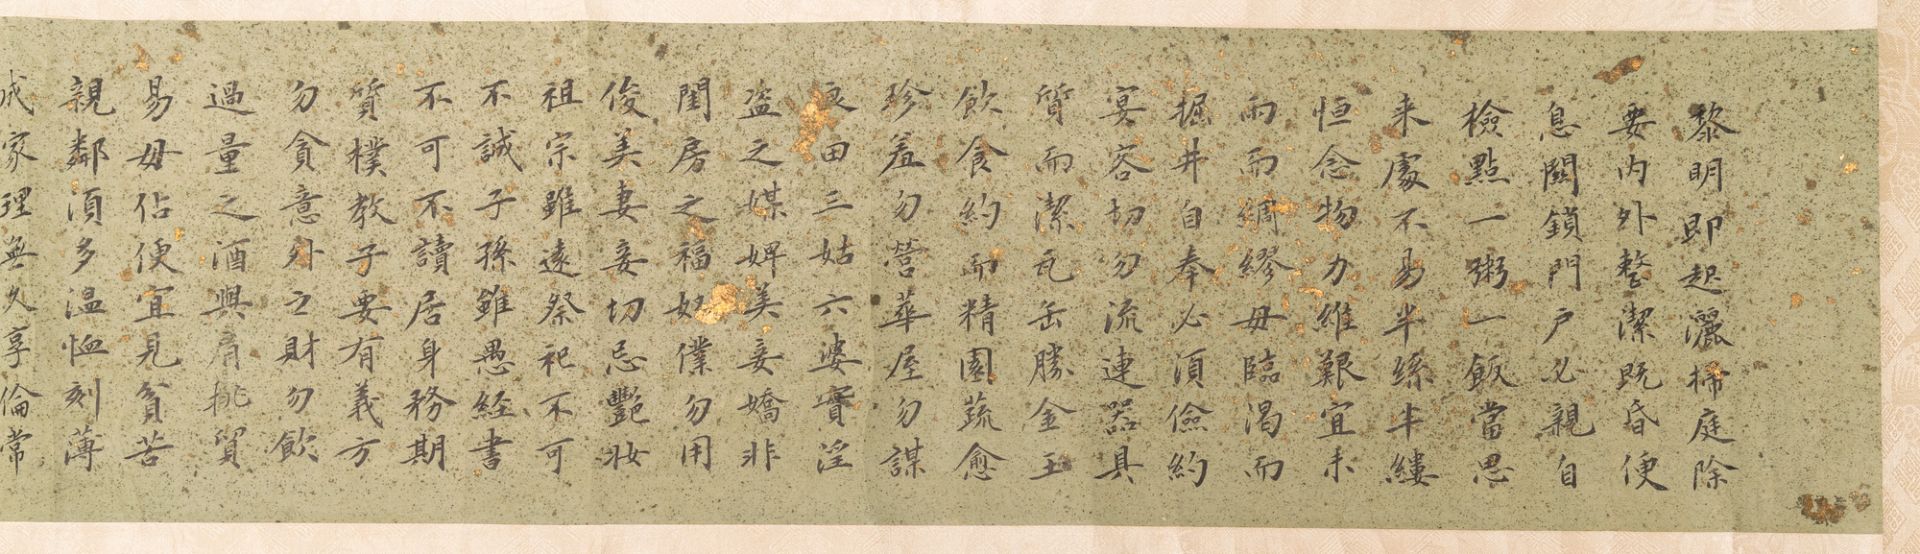 黎明即起灑掃庭除
要內外整潔既昏便
息關鎖門戶必親自
檢點一粥一飯當思
来處不易半絲半縷
恒念物力維艱宜未
雨而綢繆毋臨渴而
掘井自奉必須儉約
宴客切勿流連器具
質而潔瓦缶勝金玉
飲食約而精園蔬愈
珍羞勿營華屋勿謀
良田三姑六婆實淫
盗之媒婢美妾嬌非
閨房之福奴僕勿用
俊美妻妾切忌艷妝
祖宗雖遠祭祀不可
不誠子孫雖愚經書
不可不讀居身務期
質樸教子要有義方
勿貪意外之財勿飲
過量之酒與肩挑貿
易毋佔便宜見貧苦
親鄰須多温恤刻薄
成家理無久享倫常